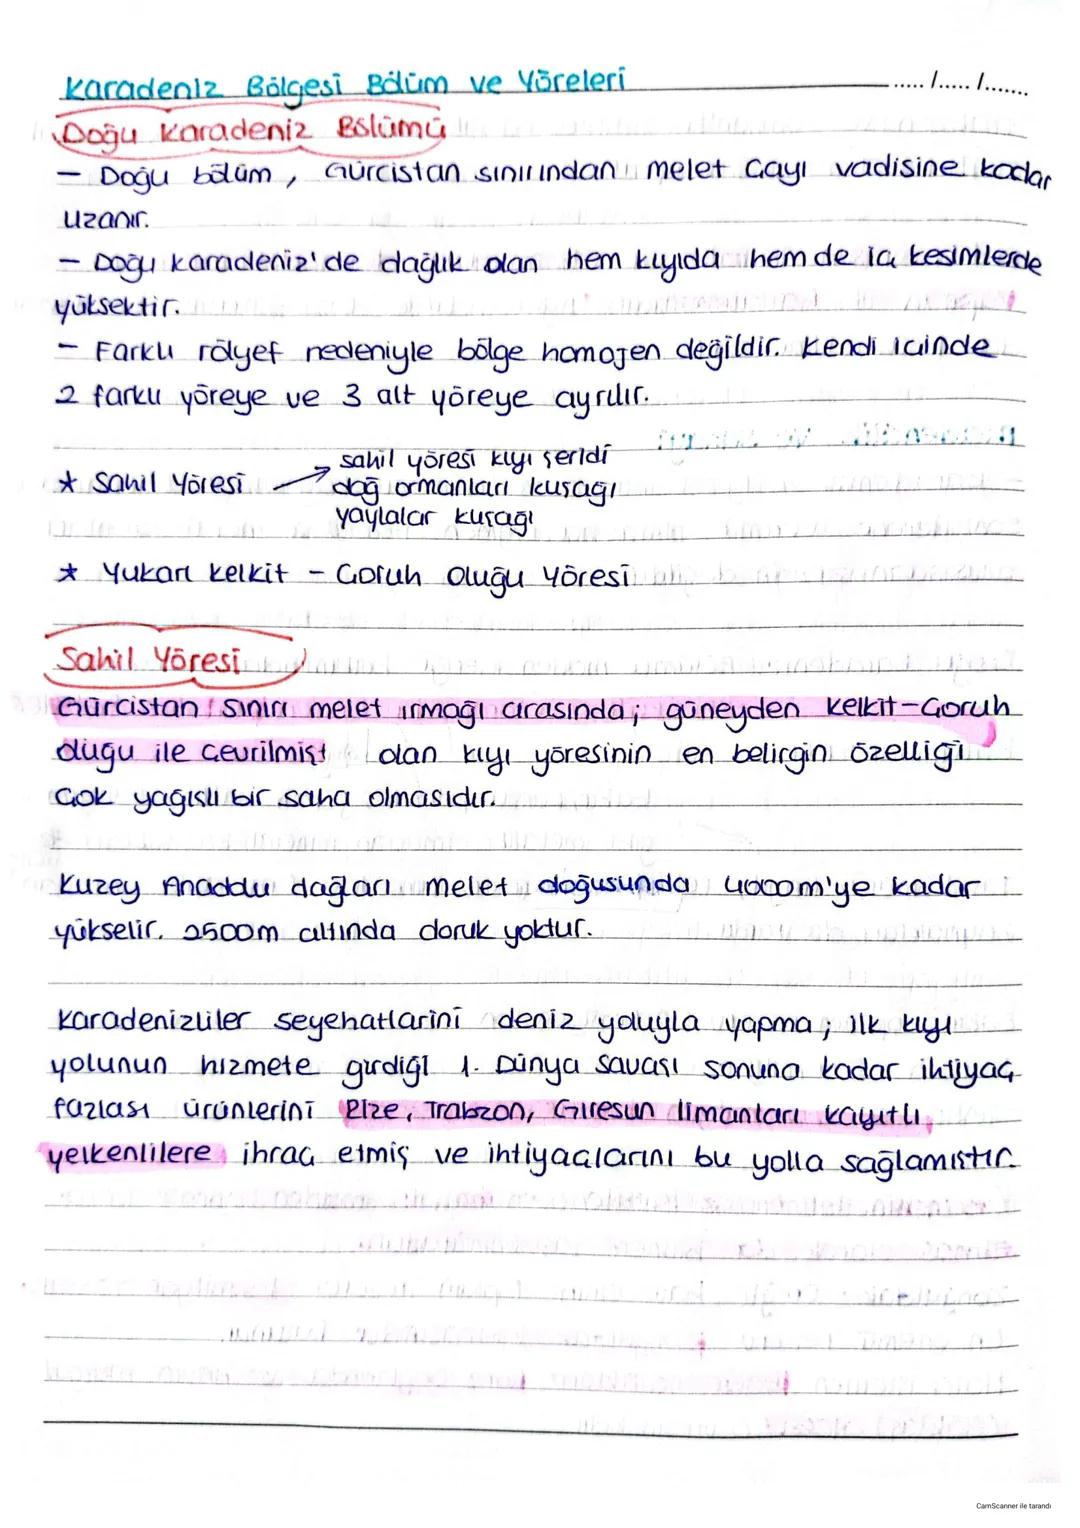 Karadeniz Bölgesi Bölüm ve Yöreleri ...../...../.......
Doğu Karadeniz Bölümü
- Doğu bölüm, Gürcistan sınırından melet Çayı vadisine kadar
uzanır.
- Doğu Karadeniz'de dağlık olan hem kıyıda hem de iç kesimlerde
yüksektir.
- Farklı rölyef nedeniyle bölge homojen değildir. Kendi içinde
2 farklı yöreye ve 3 alt yöreye ayrılır.
* Sahil Yöresi → sahil yöresi kıyı şeridi
dağ ormanları kuşağı
yaylalar kuşağı
* Yukarı Kelkit - Çoruh Oluğu Yöresi
Sahil Yöresi
Gürcistan sınırı melet ırmağı arasında; güneyden Kelkit-Çoruh
oluğu ile çevrilmişt olan kıyı yöresinin en belirgin özelliği
çok yağışlı bir saha olmasıdır.
Kuzey Anadolu dağları melet doğusunda 4000m'ye kadar
yükselir. 2500m altında doruk yoktur.
Karadenizliler seyehatlarini deniz yoluyla yapma; ilk kıyı
yolunun hizmete girdiği 1. Dünya Savaşı sonuna kadar ihtiyaç
fazlası ürünlerini Rize, Trabzon, Giresun limanları kayıtlı
yelkenlilere ihraç etmiş ve ihtiyaçlarını bu yolla sağlamıştır.
CamScanner ile tarandı